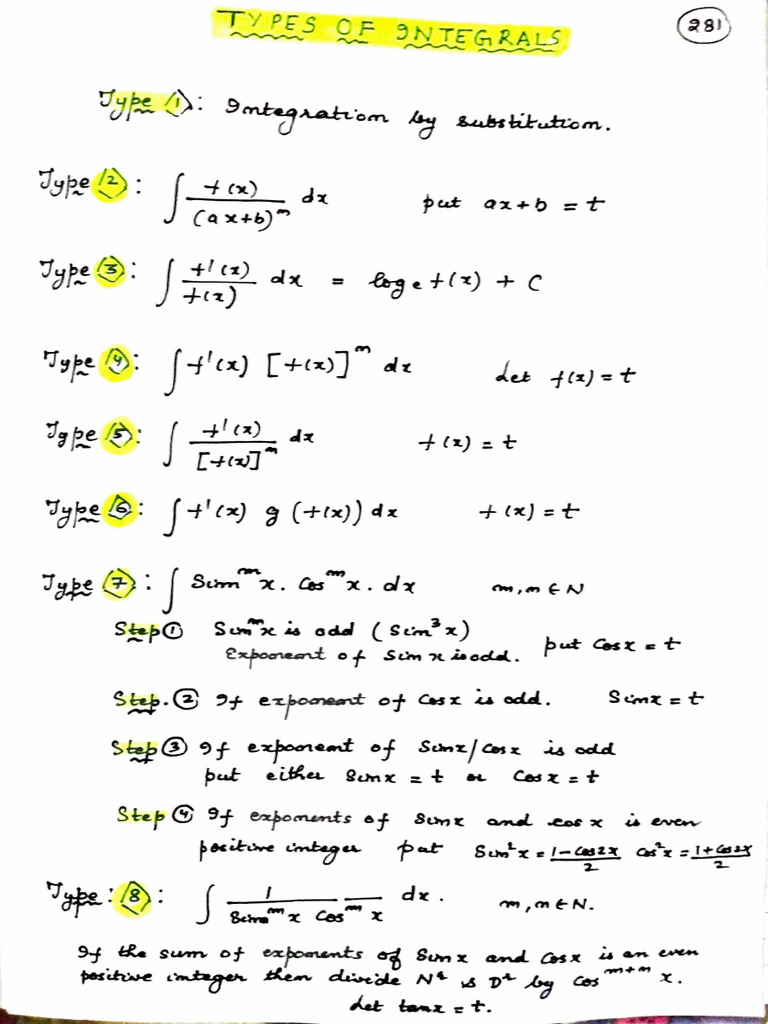 TYPES OF INTEGRALS
281
Type 1: Integration by substitution.
Type 2: ∫ f(x)/(ax+b)^n dx put ax+b = t
Type 3: ∫ f'(x)/f(x) dx = log e f(x) + C
Type 4: ∫ f'(x) [f(x)]^n dx Let f(x) = t
Type 5: ∫ f'(x)/[f(x)]^n dx f(x) = t
Type 6: ∫ f'(x) g (f(x)) dx f(x) = t
Type 7: ∫ Sin^m x. Cos^n x. dx m,n ∈ N
Step ① Sin^m x is odd (Sin^3 x)
Exponent of Sin x is odd. put Cos x = t
Step. ② If exponent of Cos x is odd. Sin x = t
Step ③ If exponent of Sin x/Cos x is odd
put either Sin x = t or Cos x = t
Step ④ If exponents of Sin x and cos x is even
positive integer put Sin²x = (1-Cos2x)/2 Cos²x = (1+Cos2x)/2
Type: 8: ∫ 1/(Sin^m x Cos^n x) dx. m,n ∈ N.
If the sum of exponents of Sin x and Cos x is an even
positive integer then divide N^r & D^r by Cos^(m+n) x.
Let tan x = t.